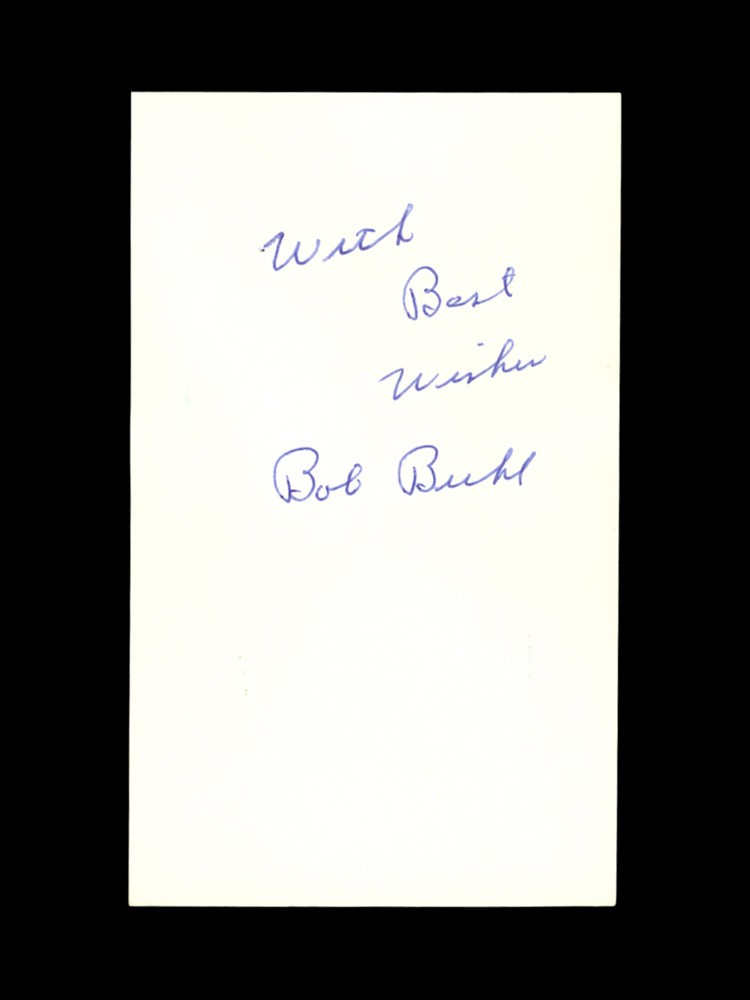 With
Best
Wishes
Bob Buhl